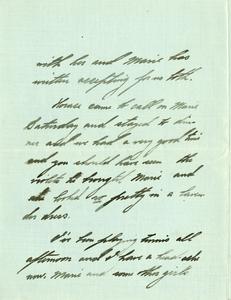 with her and Marie has
written accepting for us both.
Horace came to call on Marie
Saturday and stayed to din-
ner and we had a very good time
and you should have seen the
violets he brought Marie and
she looked very pretty in a laven-
der dress.
I've been playing tennis all
afternoon and I have a headache
now. Marie and some other girls